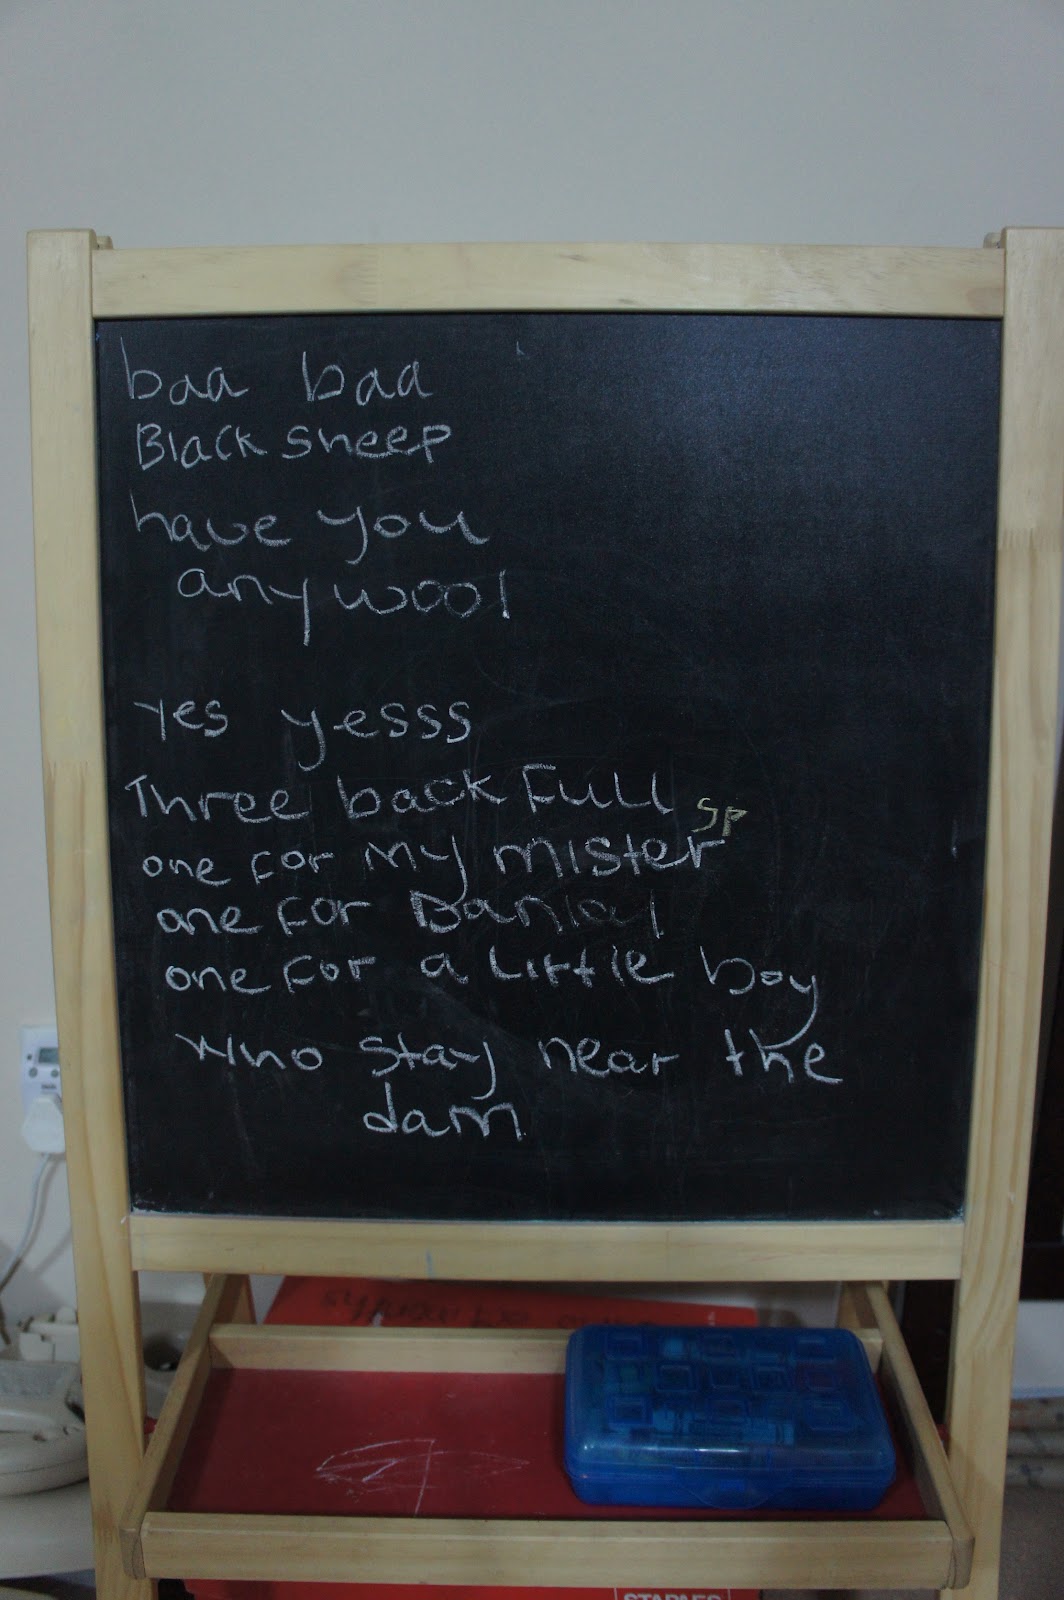 baa baa
Black sheep
have you
any wool
yes yesss
Three back Full
sp
one for my mister
one for Danial
one for a little boy
who stay near the
dam
STAPLES